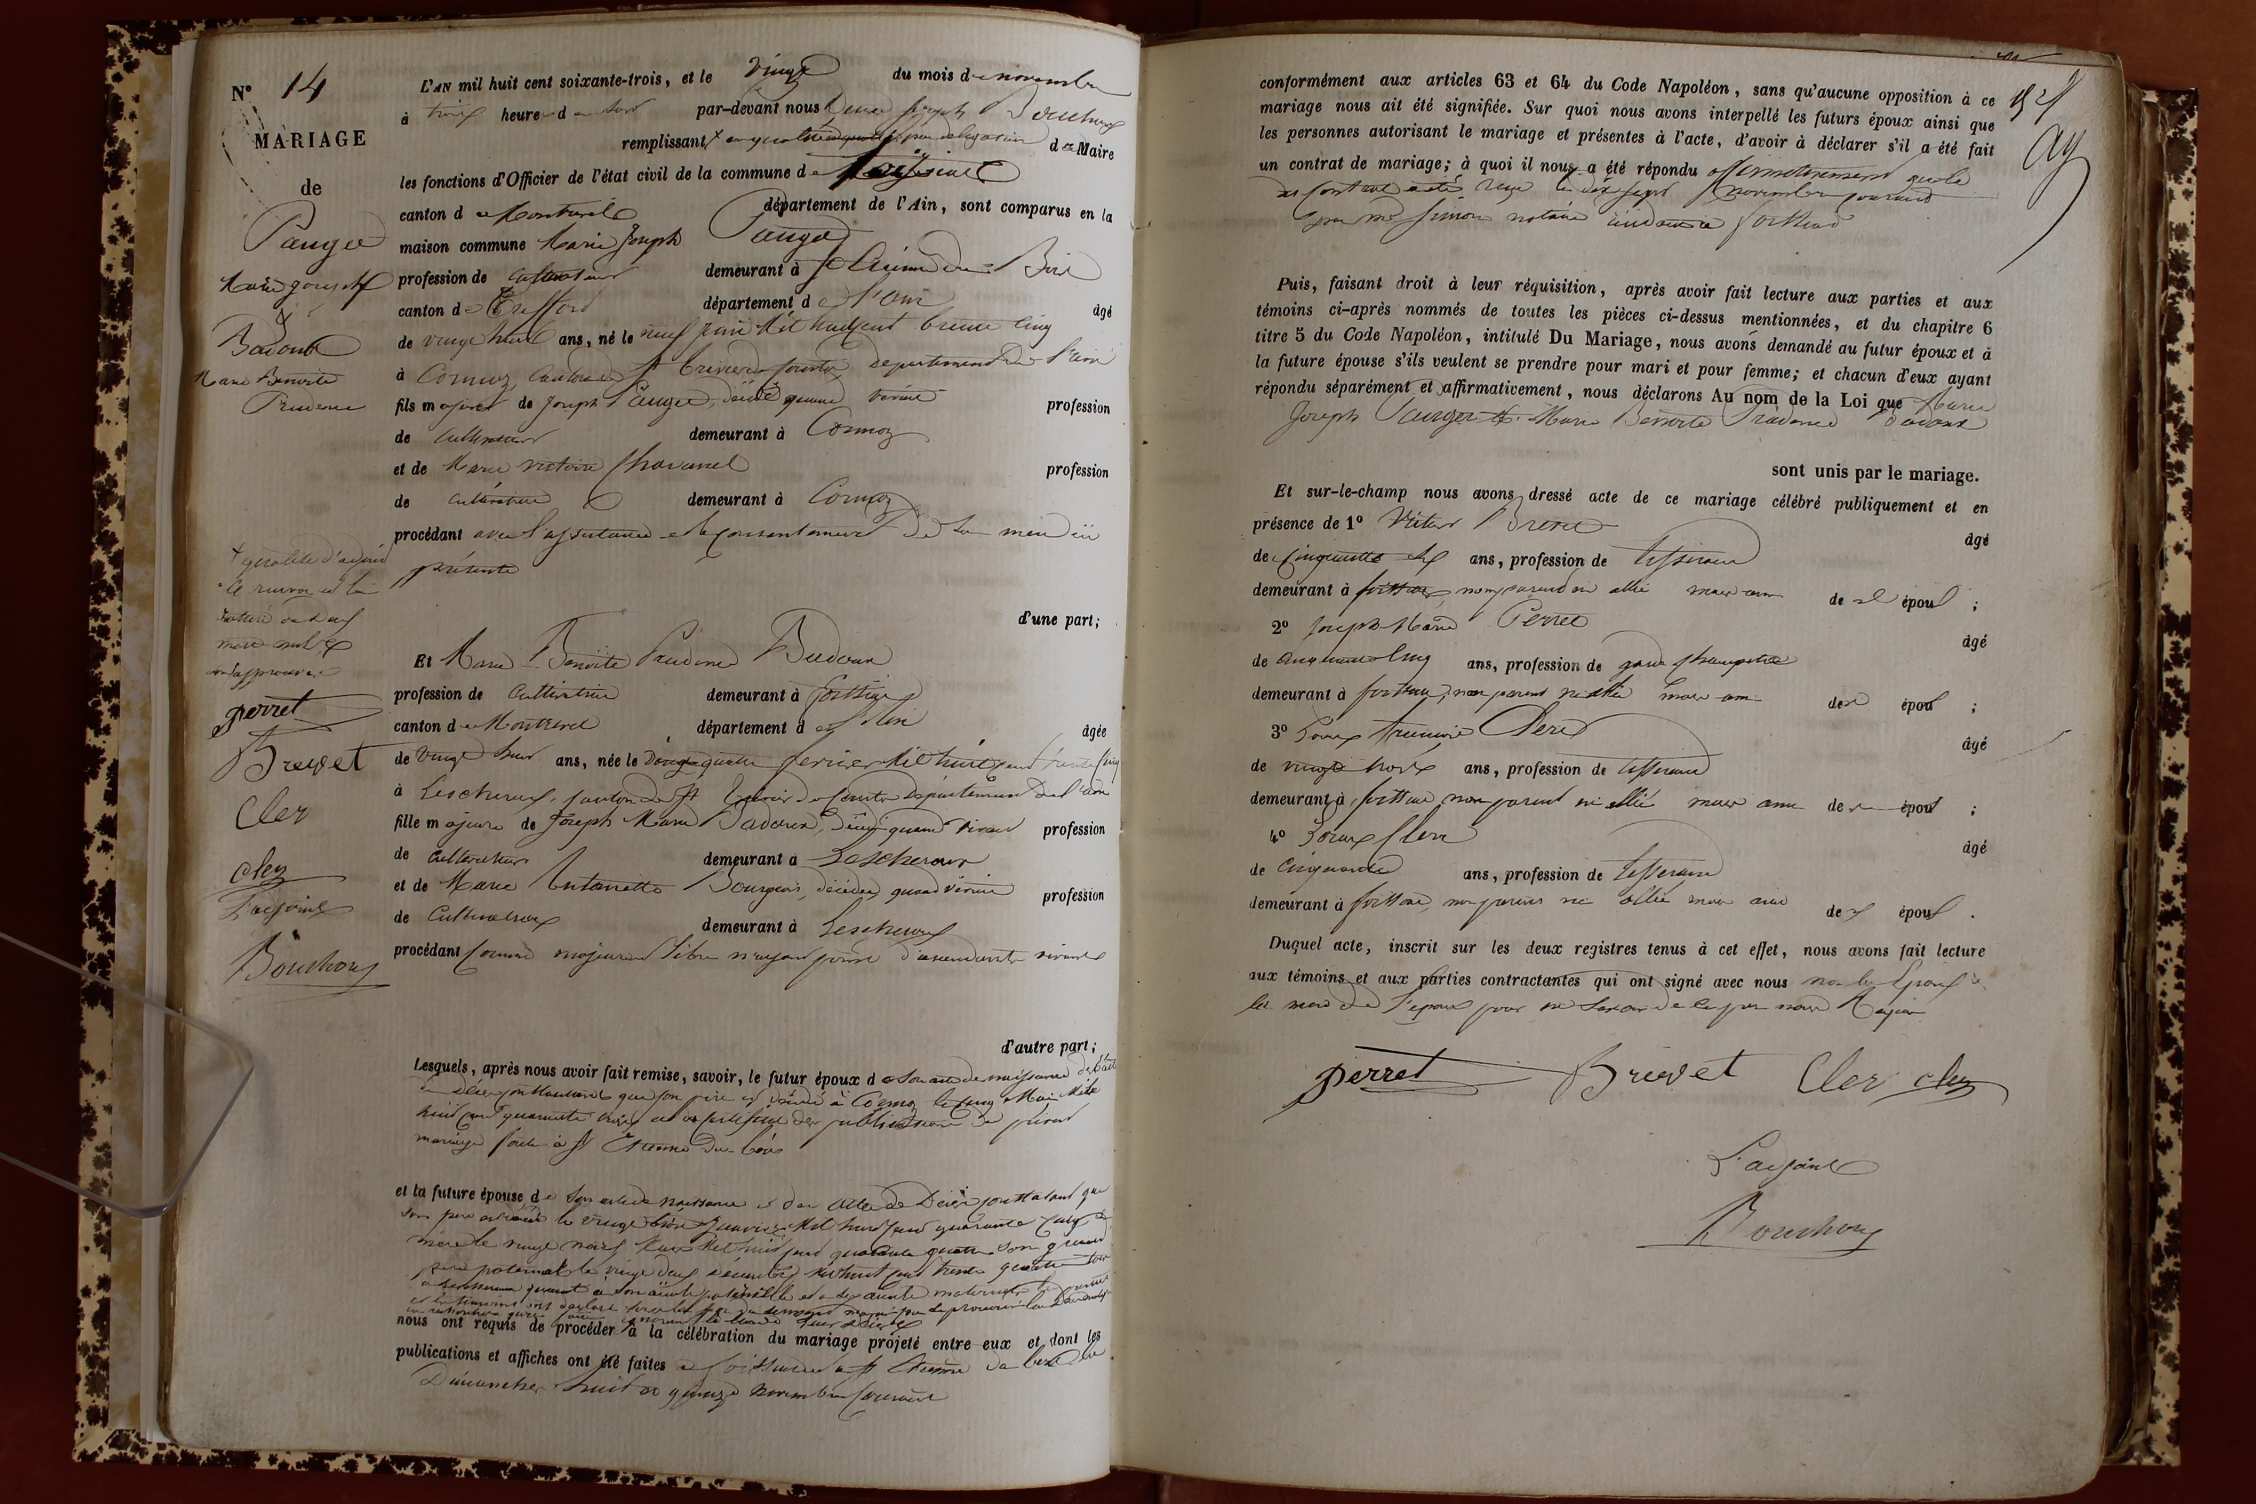 N° 14
MARIAGE
de
Pauget
Marie Joseph
&
Badoux
Marie Benoite
Prudence
L'AN mil huit cent soixante-trois, et le vingt du mois de novembre
à trois heures du soir par-devant nous Joseph Bouchoux
remplissant par délégation de Maire
les fonctions d'Officier de l'état civil de la commune de
canton de Montrevel département de l'Ain, sont comparus en la
maison commune Marie Joseph Pauget
profession de cultivateur demeurant à St Etienne du Bois
canton de Treffort département de l'Ain âgé
de vingt huit ans, né le neuf juin mil huit cent trente cinq
à Cormoz, canton de St Trivier de Courtes département de l'Ain
fils majeur de Joseph Pauget, décédé quand vivait profession
de cultivateur demeurant à Cormoz
et de Marie victoire Chavanel profession
de cultivatrice demeurant à Cormoz
procédant avec l'assistance et le consentement de sa mère ici
présente
+ qualité d'adjoint
le renvoi et la
rature de
mots nuls
approuvés
perret
Brevet
Cler
cler
L'adjoint
Bouchoux
d'une part;
Et Marie Benoite Prudence Badoux
profession de cultivatrice demeurant à Foissiat
canton de Montrevel département de l'Ain âgée
de vingt huit ans, née le quatre février mil huit cent trente cinq
à Lescheroux, canton de St Trivier de Courtes département de l'Ain
fille majeure de Joseph Marie Badoux, décédé quand vivait profession
de cultivateur demeurant à Lescheroux
et de Marie Antoinette Bourgeois, décédée, quand vivait profession
de Cultivatrice demeurant à Lescheroux
procédant comme majeure et libre n'ayant point d'ascendants vivants
d'autre part;
Lesquels, après nous avoir fait remise, savoir, le futur époux de son acte de naissance de l'acte
de décès constatant que son père est décédé à Cormoz le cinq Mai Mil
huit cent quarante trois et certificat des publications du présent
mariage faite à St Etienne du bois
et la future épouse de son acte de naissance et des actes de Décès constatant que
son père est décédé le vingt trois Janvier Mil huit cent quarante cinq sa
mère le vingt neuf Mars Mil huit cent quarante quatre son grand
père paternel le vingt deux décembre mil huit cent trente quatre
à Lescheroux quant à son aïeule paternelle et à ses aïeuls maternels
nous ont requis de procéder à la célébration du mariage projeté entre eux et dont les
publications et affiches ont été faites à Foissiat et à St Etienne du bois les
Dimanches huit et quinze Novembre Courant
conformément aux articles 63 et 64 du Code Napoléon, sans qu'aucune opposition à ce
mariage nous ait été signifiée. Sur quoi nous avons interpellé les futurs époux ainsi que
les personnes autorisant le mariage et présentes à l'acte, d'avoir à déclarer s'il a été fait
un contrat de mariage; à quoi il nous a été répondu affirmativement que le
dit contrat a été reçu le dix sept novembre courant
par me Simon notaire résidence à Foissiat
Puis, faisant droit à leur réquisition, après avoir fait lecture aux parties et aux
témoins ci-après nommés de toutes les pièces ci-dessus mentionnées, et du chapitre 6
titre 5 du Code Napoléon, intitulé Du Mariage, nous avons demandé au futur époux et à
la future épouse s'ils veulent se prendre pour mari et pour femme; et chacun d'eux ayant
répondu séparément et affirmativement, nous déclarons Au nom de la Loi que Marie
Joseph Pauget et Marie Benoite Prudence Badoux
sont unis par le mariage.
Et sur-le-champ nous avons dressé acte de ce mariage célébré publiquement et en
présence de 1° Victor Brevet âgé
de cinquante ans, profession de tisserand
demeurant à Foissiat, non parent ni allié mais ami de l'époux;
2° Joseph Marie Perret âgé
de cinquante cinq ans, profession de garde champêtre
demeurant à Foissiat, non parent ni allié mais ami de l'époux;
3° Clerc âgé
de vingt trois ans, profession de tisserand
demeurant à Foissiat, non parent ni allié mais ami de l'époux;
4° Clerc âgé
de Cinquante ans, profession de tisserand
demeurant à Foissiat, non parent ni allié mais ami de l'époux.
Duquel acte, inscrit sur les deux registres tenus à cet effet, nous avons fait lecture
aux témoins et aux parties contractantes qui ont signé avec nous non les Epoux ni
la mère de l'époux pour ne savoir de ce par nous Requis
perret Brevet Cler cler
L'adjoint
Bouchoux